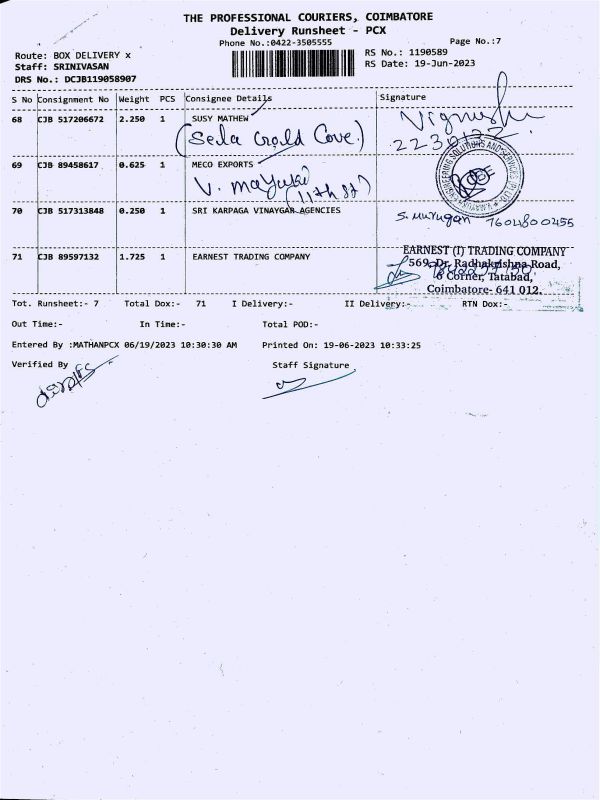 THE PROFESSIONAL COURIERS, COIMBATORE
Delivery Runsheet - PCX
Phone No.:0422-3505555
Page No.:7
Route: BOX DELIVERY x
RS No.: 1190589
Staff: SRINIVASAN
RS Date: 19-Jun-2023
DRS No.: DCJB119058907
S No Consignment No Weight PCS Consignee Details Signature
68 CJB 517206672 2.250 1 SUSY MATHEW
69 CJB 89458617 0.625 1 MECO EXPORTS
V. mayuki
(11th st)
70 CJB 517313848 0.250 1 SRI KARPAGA VINAYGAR AGENCIES
S. Murugan 7604800455
71 CJB 89597132 1.725 1 EARNEST TRADING COMPANY
EARNEST (I) TRADING COMPANY
569, Dr. Radhakrishna Road,
6 Corner, Tatabad,
Coimbatore- 641 012.
Tot. Runsheet:- 7 Total Dox:- 71 I Delivery:- II Delivery:- RTN Dox:-
Out Time:- In Time:- Total POD:-
Entered By :MATHANPCX 06/19/2023 10:30:30 AM Printed On: 19-06-2023 10:33:25
Verified By Staff Signature